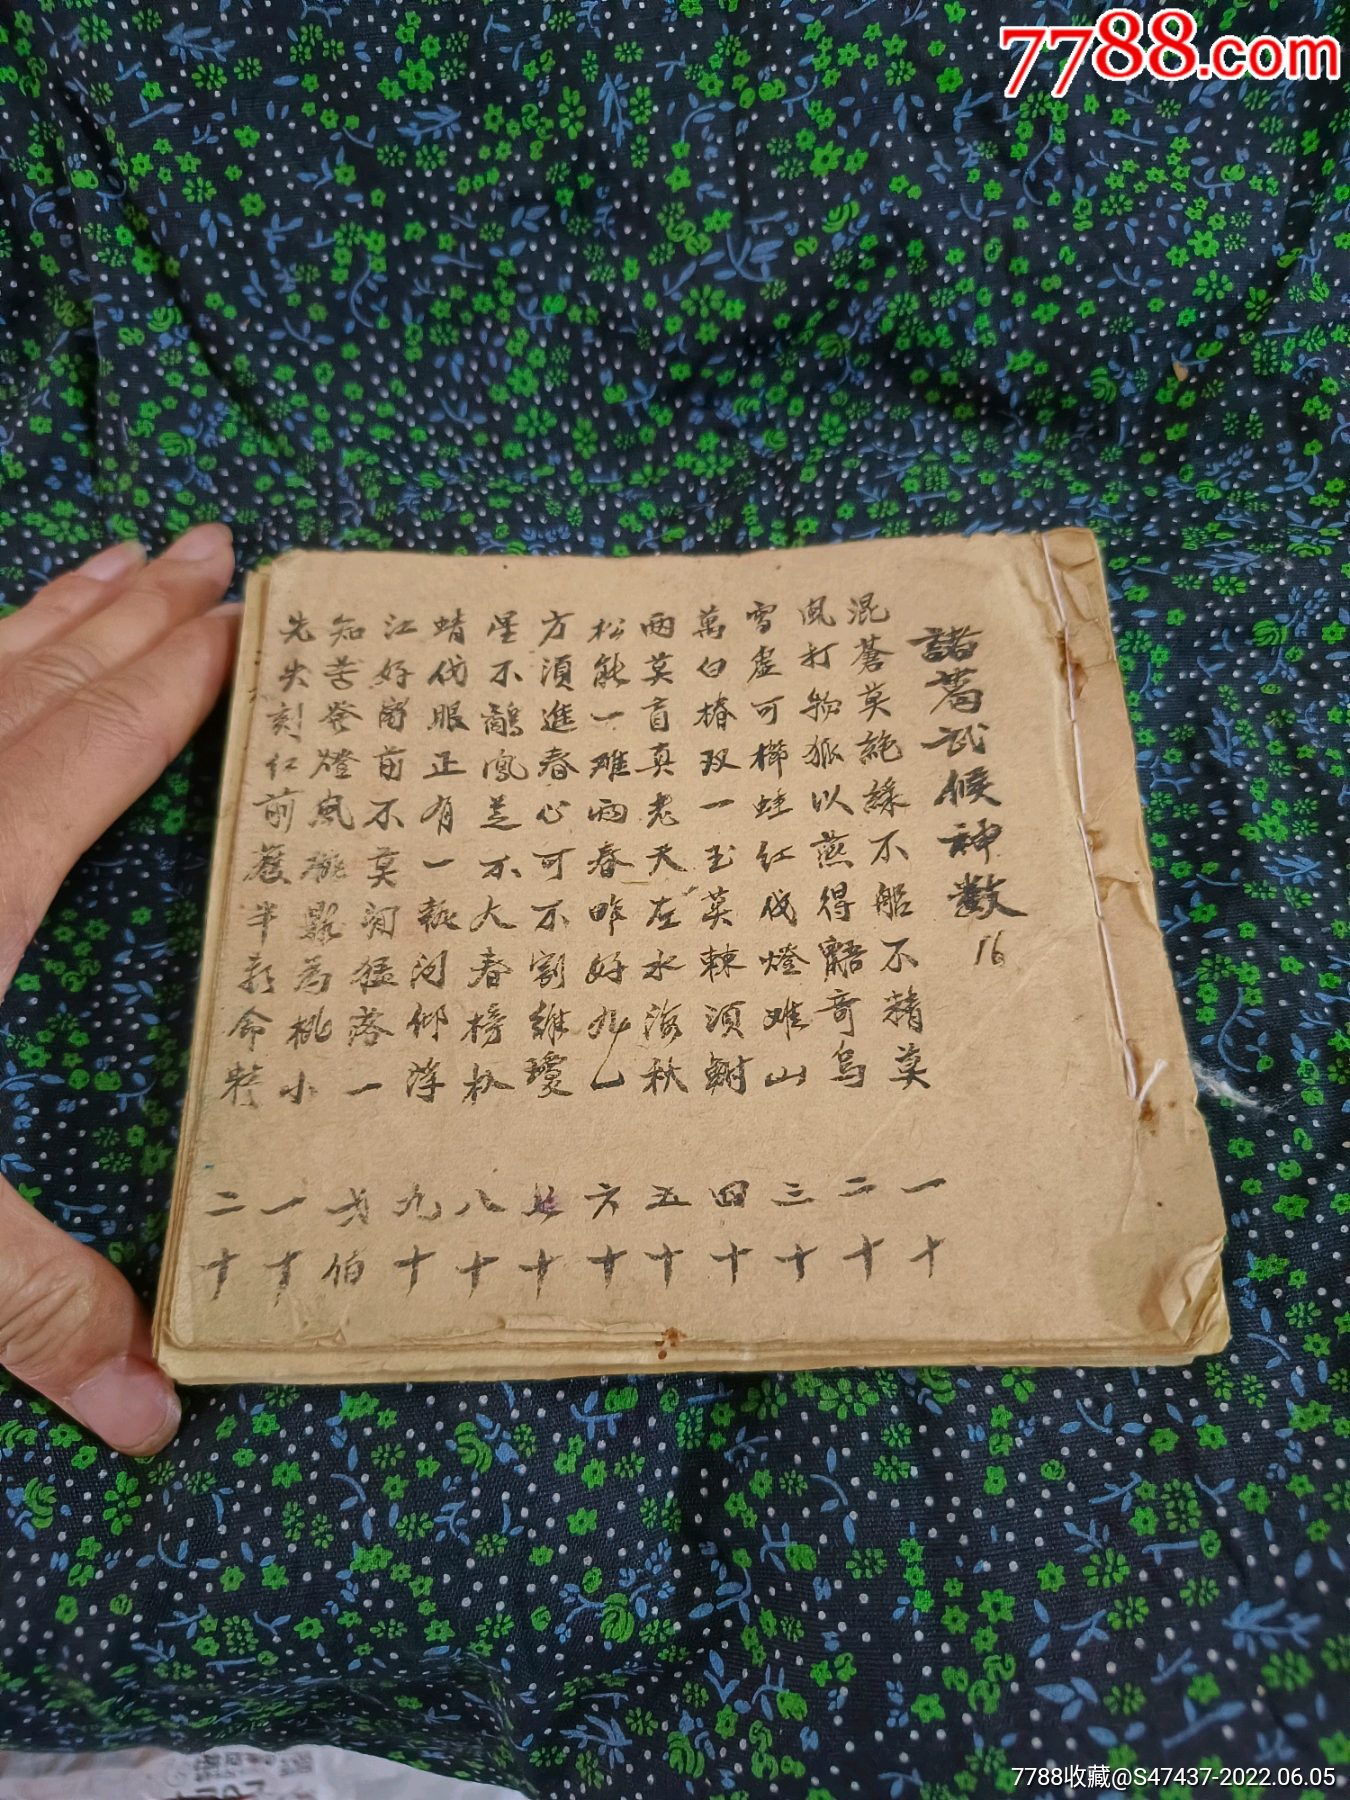 7788.com
諸葛武候神數
16
混蒼莫絶緣不船不精莫 一十
風打物狐以燕得語奇烏 二十
雪虚可櫛蛙红伐燈难山 三十
萬白椿双一玉莫棘須謝 四十
兩莫盲真老天左水海秋 五十
松能一难雨春昨好九一 六十
方須進春心可不割維瓊 七十
星不鷸鳳芝不大春榜 八十
蜻伐眼正有一執河仰浮 九十
江好窗前不莫洞猛落一 弍伯
知苦登燈風桃為桃小 一十
先失刻红前舊半新命 二十
7788收藏@S47437-2022.06.05